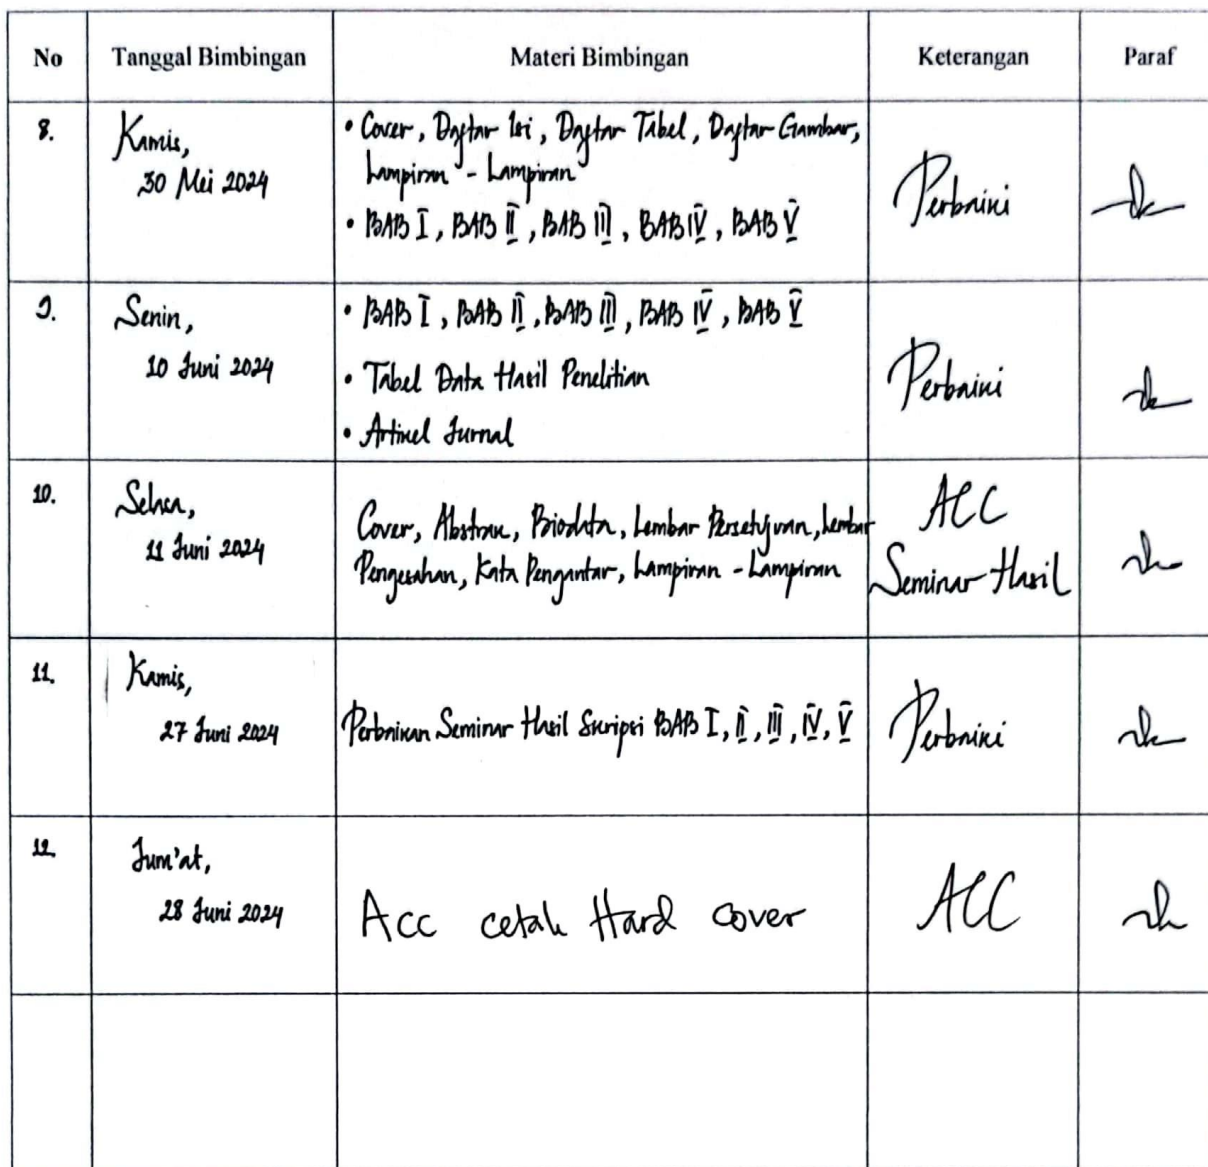 No Tanggal Bimbingan Materi Bimbingan Keterangan Paraf
8. Kamis,
30 Mei 2024
• Cover, Daftar Isi, Daftar Tabel, Daftar Gambar,
Lampiran - Lampiran
• BAB I, BAB II, BAB III, BAB IV, BAB V
Perbaiki
9. Senin,
10 Juni 2024
• BAB I, BAB II, BAB III, BAB IV, BAB V
• Tabel Data Hasil Penelitian
• Artikel Jurnal
Perbaiki
10. Selasa,
11 Juni 2024
Cover, Abstrak, Biodata, Lembar Persetujuan, Lembar
Pengesahan, Kata Pengantar, Lampiran - Lampiran
ACC
Seminar Hasil
11. Kamis,
27 Juni 2024
Perbaikan Seminar Hasil Skripsi BAB I, II, III, IV, V
Perbaiki
12. Jum'at,
28 Juni 2024
Acc cetak Hard cover
ACC